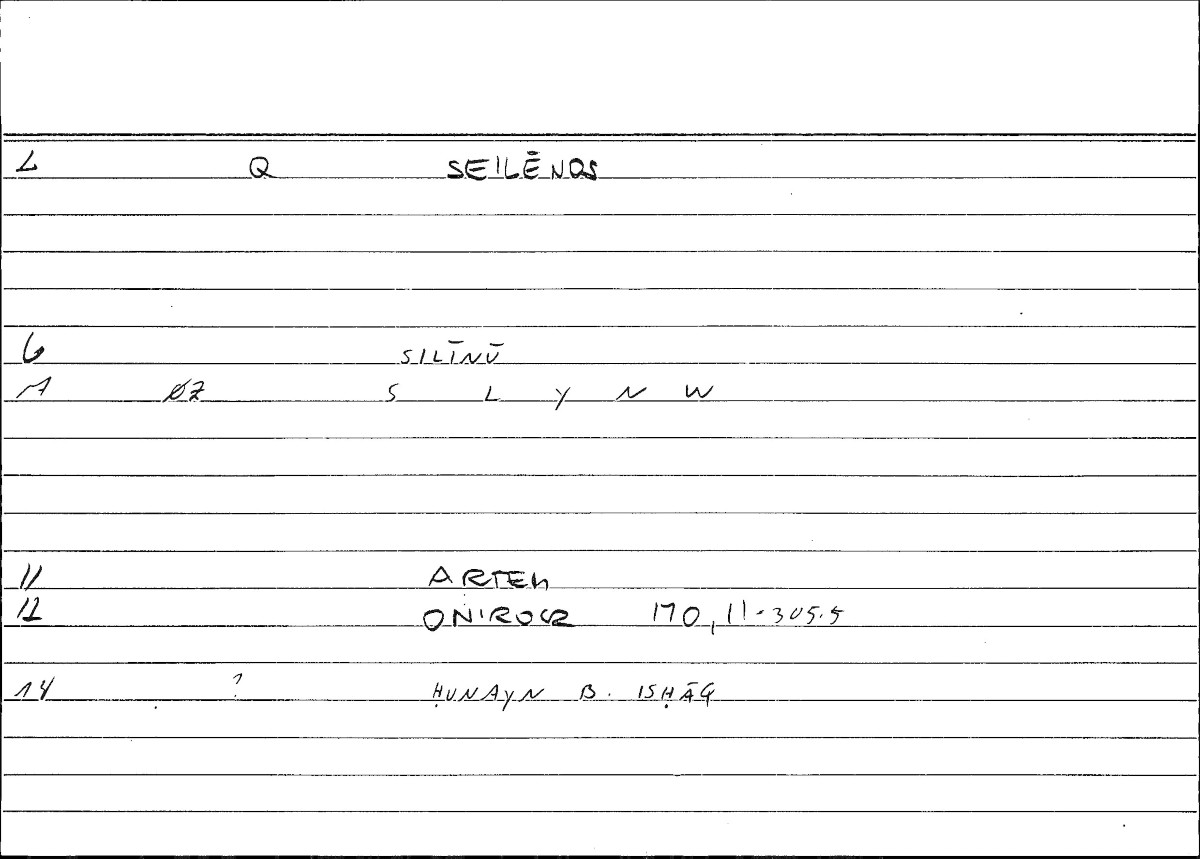 L Q SEILĒNOS
6 SILĪNŪ
7 ØZ S L Y N W
11 ARTEM
12 ONIROCR 170,11-305.5
14 ? ḤUNAYN B. ISḤĀQ